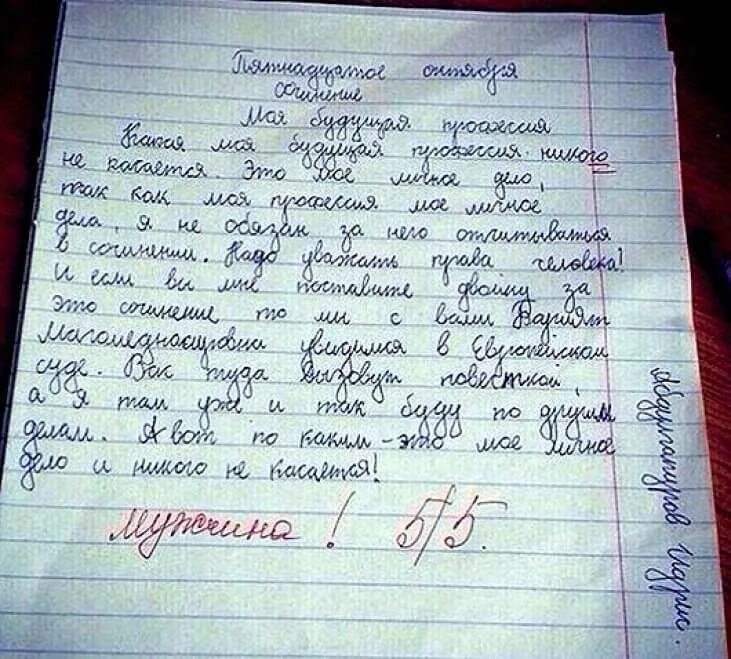 Пятнадцатое октября
Сочинение
Моя будущая профессия
Какая моя будущая профессия никого
не касается. Это мое личное дело,
так как моя профессия мое личное
дела, я не обязан за него отчитываться
в сочинении. Надо уважать права человека!
И если вы мне поставите двойку за
это сочинение то мы с вами Вагият
Магомеднасировна увидимся в Европейском
суде. Вас туда вызовут повесткой,
а я там уже и так буду по другим
делам. А вот по каким - это мое личное
дело и никого не касается!
мужчина! 5/5.
Абдулгапуров Идрис.